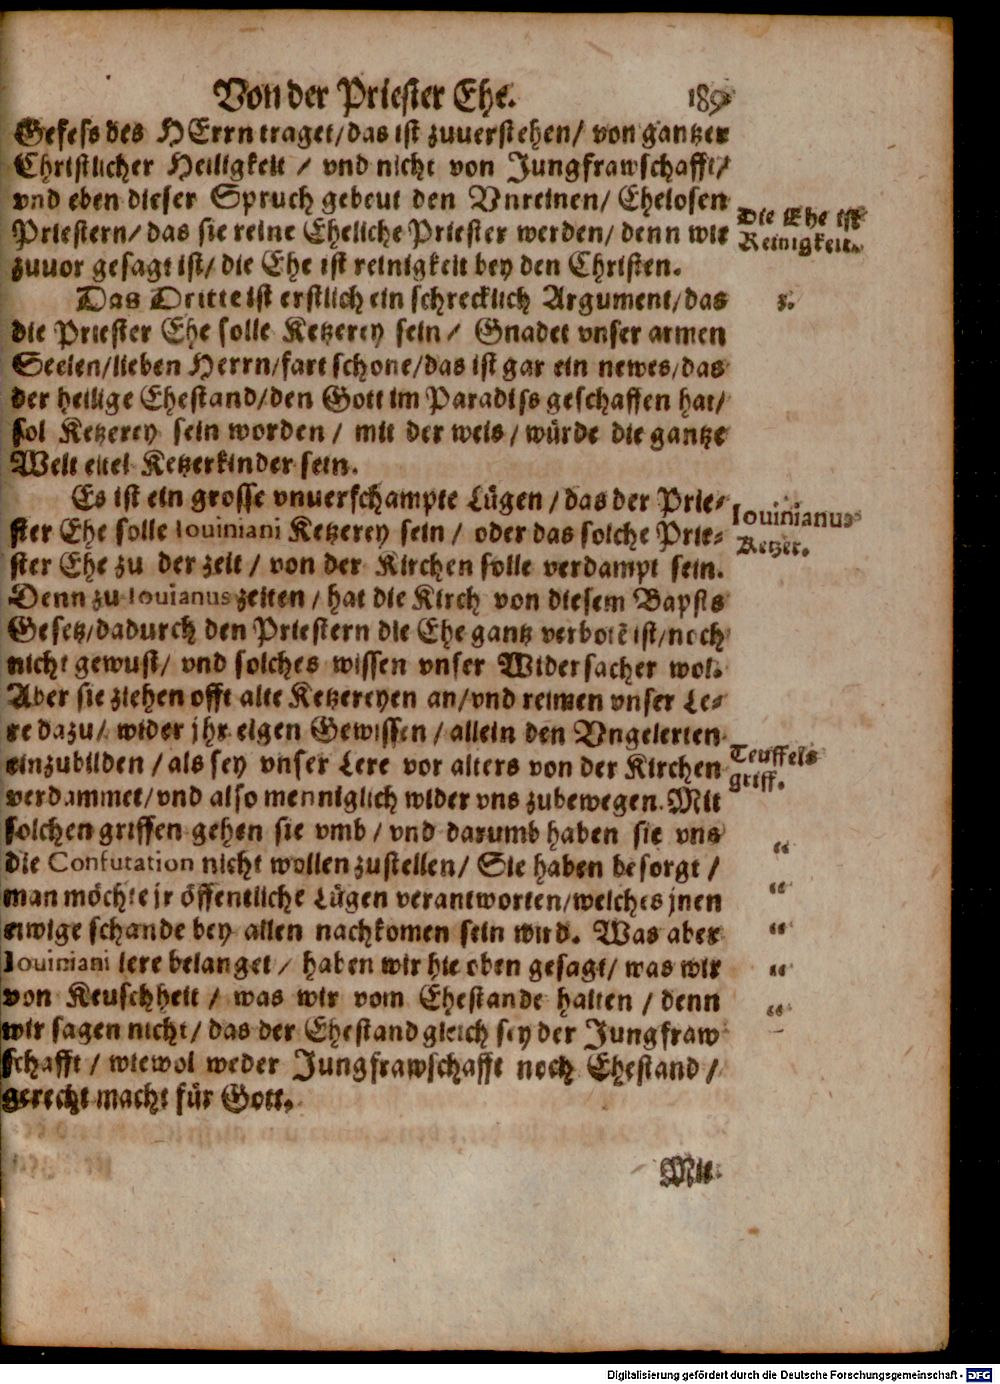 Von der Priester Ehe. 189
Gefess des HErrn traget/das ist zuuerstehen/ von gantzer
Christlicher Heiligkeit / vnd nicht von Jungfrawschafft/
vnd eben dieser Spruch gebeut den Vnreinen/ Ehelosen
Priestern/ das sie reine Eheliche Priester werden/ denn wie
zuuor gesagt ist/ die Ehe ist reinigkeit bey den Christen.
Die Ehe ist
Reinigkeit.
Das Dritte ist erstlich ein schrecklich Argument/das
3.
die Priester Ehe solle Ketzerey sein/ Gnadet vnser armen
Seelen/lieben Herrn/fart schone/das ist gar ein newes/das
der heilige Ehestand/den Gott im Paradiss geschaffen hat/
sol Ketzerey sein worden/ mit der weis/ würde die gantze
Welt eitel Ketzerkinder sein.
Es ist ein grosse vnuerschampte Lügen/das der Prie-
ster Ehe solle Iouiniani Ketzerey sein/ oder das solche Prie-
ster Ehe zu der zeit/ von der Kirchen solle verdampt sein.
Iouinianus
Ketzer.
Denn zu Iouianus zeiten/ hat die Kirch von diesem Bapsts
Gesetz/dadurch den Priestern die Ehe gantz verbotẽ ist/noch
nicht gewust/ vnd solches wissen vnser Widersacher wol.
Aber sie ziehen offt alte Ketzereyen an/vnd reimen vnser Le-
re dazu/ wider jhr eigen Gewissen/ allein den Vngelerten
einzubilden/ als sey vnser Lere vor alters von der Kirchen
verdammet/vnd also menniglich wider vns zubewegen. Mit
Teuffels
griff.
solchen griffen gehen sie vmb/ vnd darumb haben sie vns
die Confutation nicht wollen zustellen/ Sie haben besorgt/
man möchte jr öffentliche Lügen verantworten/welches jnen
ewige schande bey allen nachkomen sein wird. Was aber
Iouiniani lere belanget/ haben wir hie oben gesagt/ was wir
von Keuschheit/ was wir vom Ehestande halten/ denn
wir sagen nicht/ das der Ehestand gleich sey der Jungfraw
schafft/ wiewol weder Jungfrawschafft noch Ehestand/
gerecht macht für Gott.
“
“
“
“
“
Mit
Digitalisierung gefördert durch die Deutsche Forschungsgemeinschaft - DFG